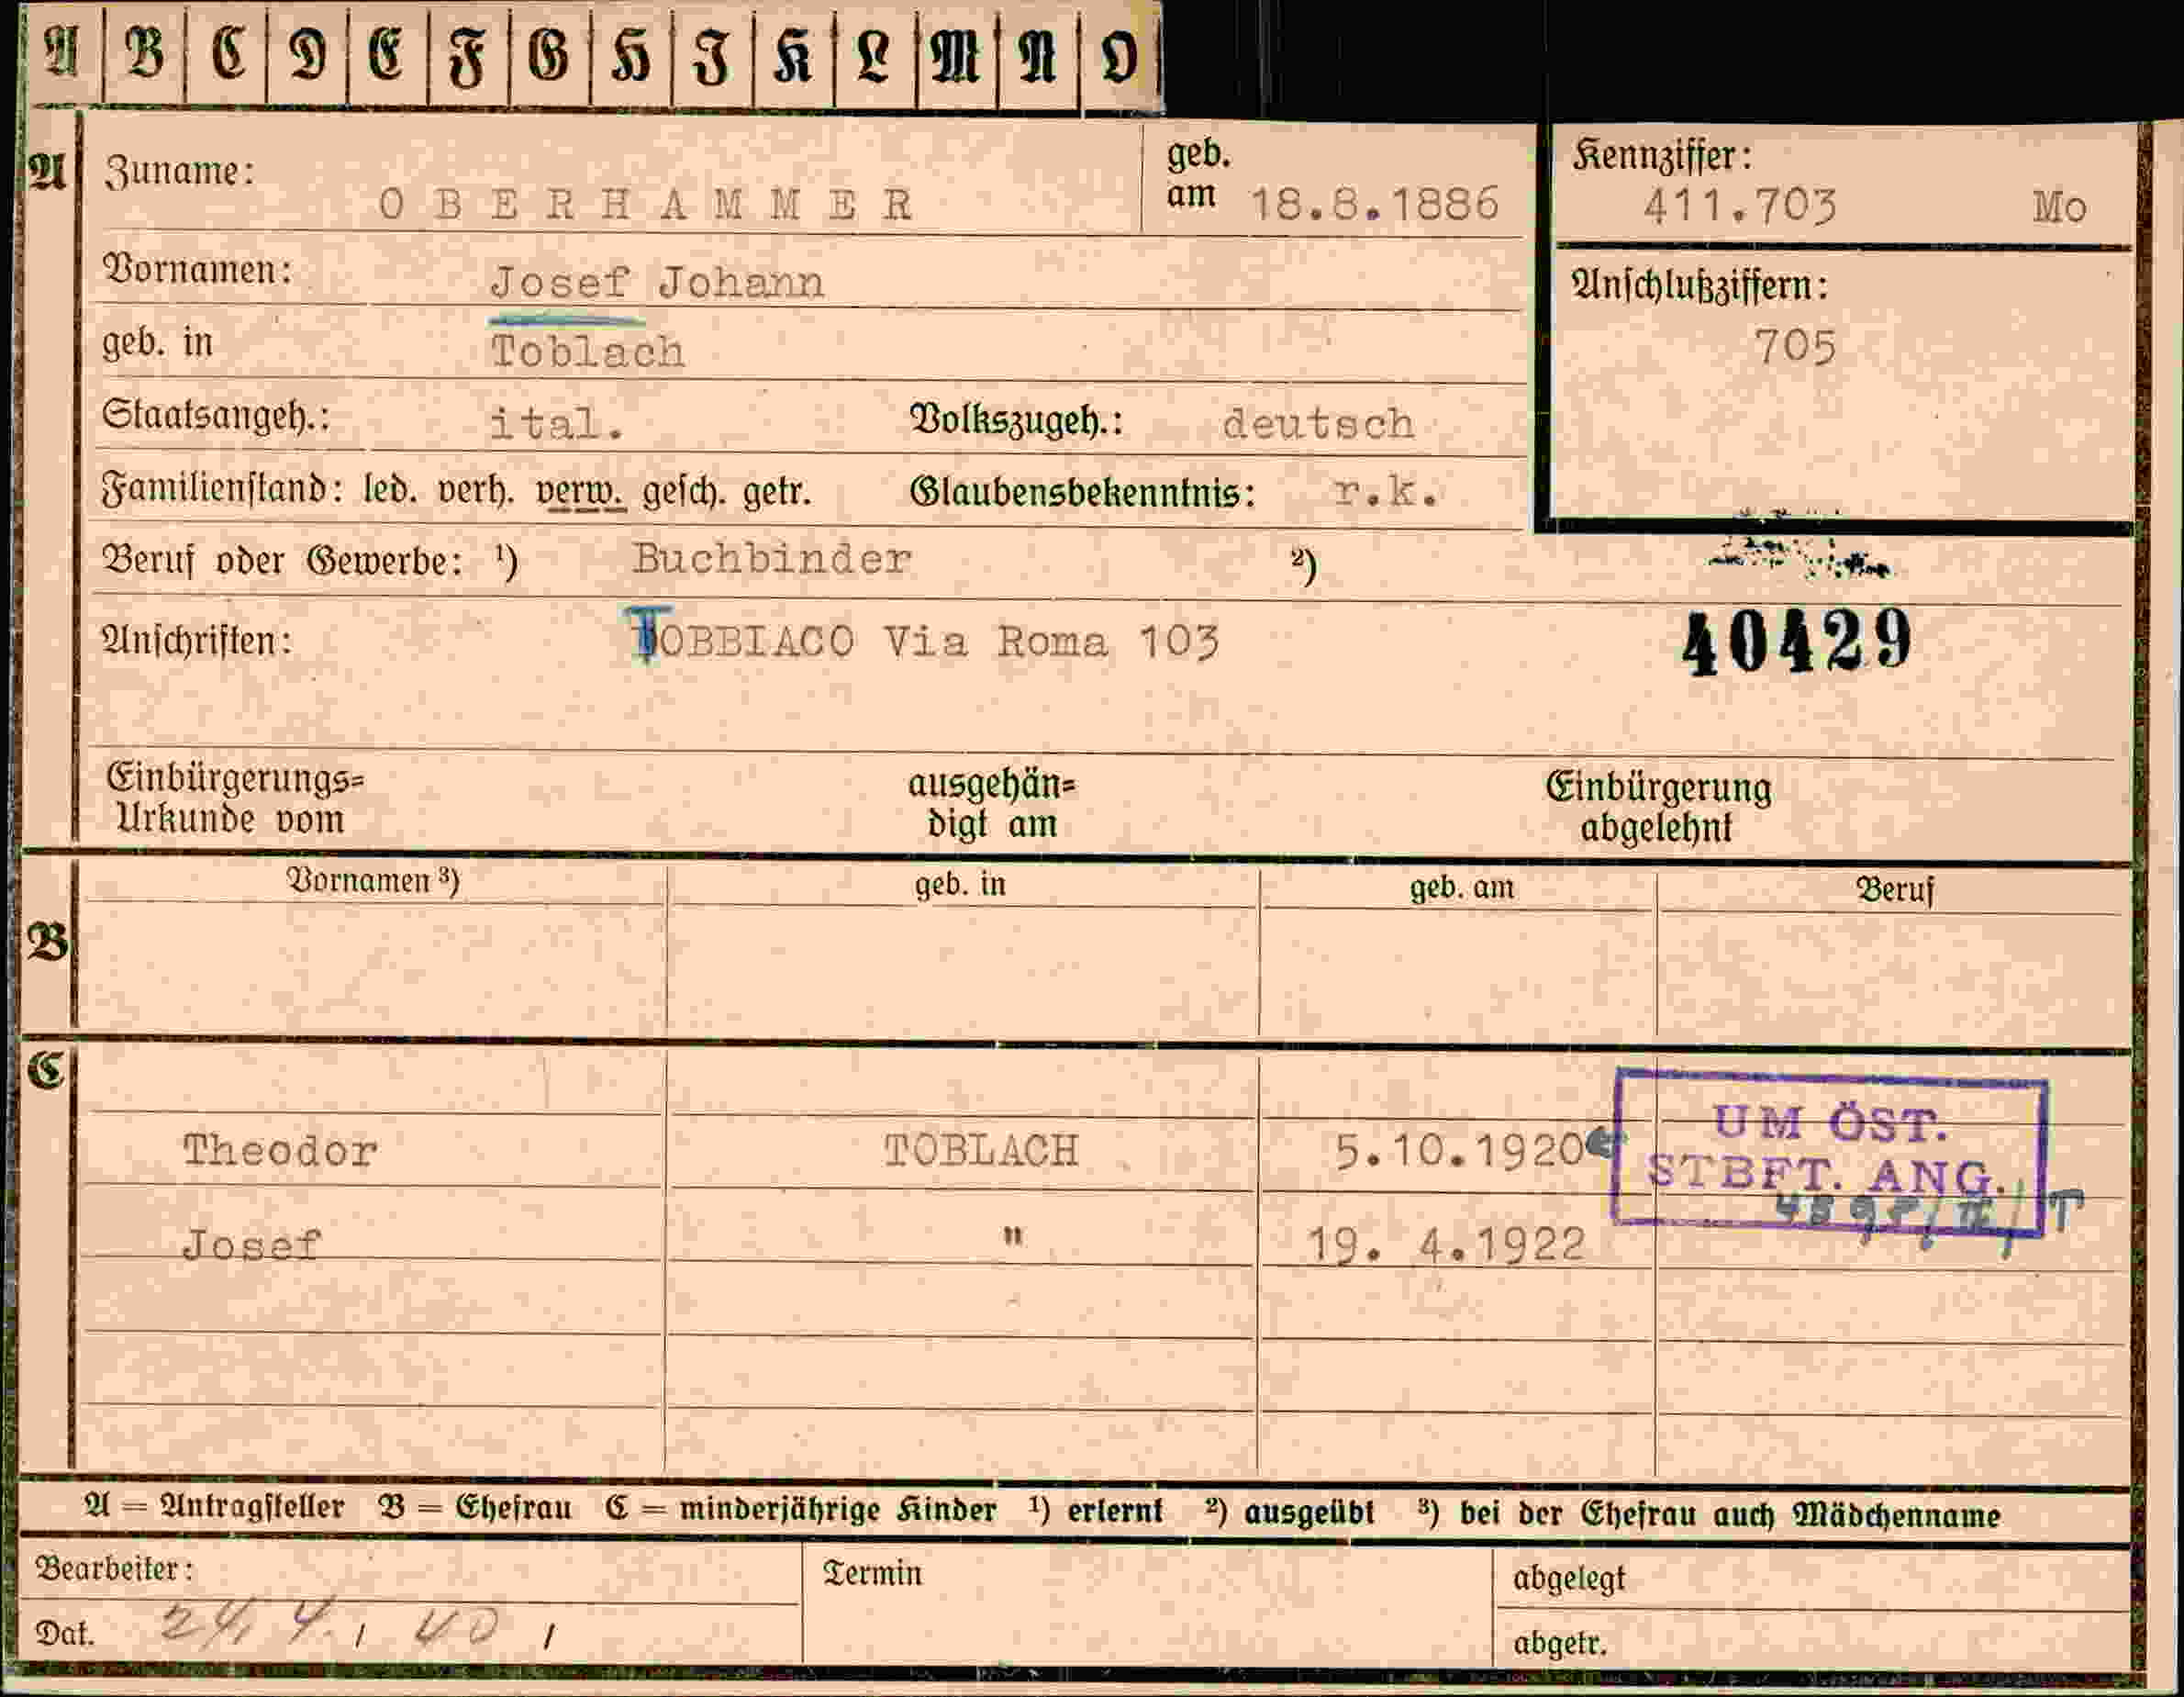 A B C D E F G H I K L M N O
A Zuname: OBERHAMMER geb. am 18.8.1886 Kennziffer: 411.703 Mo
Vornamen: Josef Johann Anschlußziffern: 705
geb. in Toblach
Staatsangeh.: ital. Volkszugeh.: deutsch
Familienstand: led. verh. verw. gesch. getr. Glaubensbekenntnis: r.k.
Beruf oder Gewerbe: ¹) Buchbinder ²)
Anschriften: TOBBIACO Via Roma 103 40429
Einbürgerungs= ausgehän= Einbürgerung
Urkunde vom digt am abgelehnt
Vornamen ³) geb. in geb. am Beruf
B
C
Theodor TOBLACH 5.10.1920
UM ÖST.
STBFT. ANG.
Josef " 19. 4.1922
A = Antragsteller B = Ehefrau C = minderjährige Kinder ¹) erlernt ²) ausgeübt ³) bei der Ehefrau auch Mädchenname
Bearbeiter: Termin abgelegt
Dat. 24. 4. 40 abgetr.